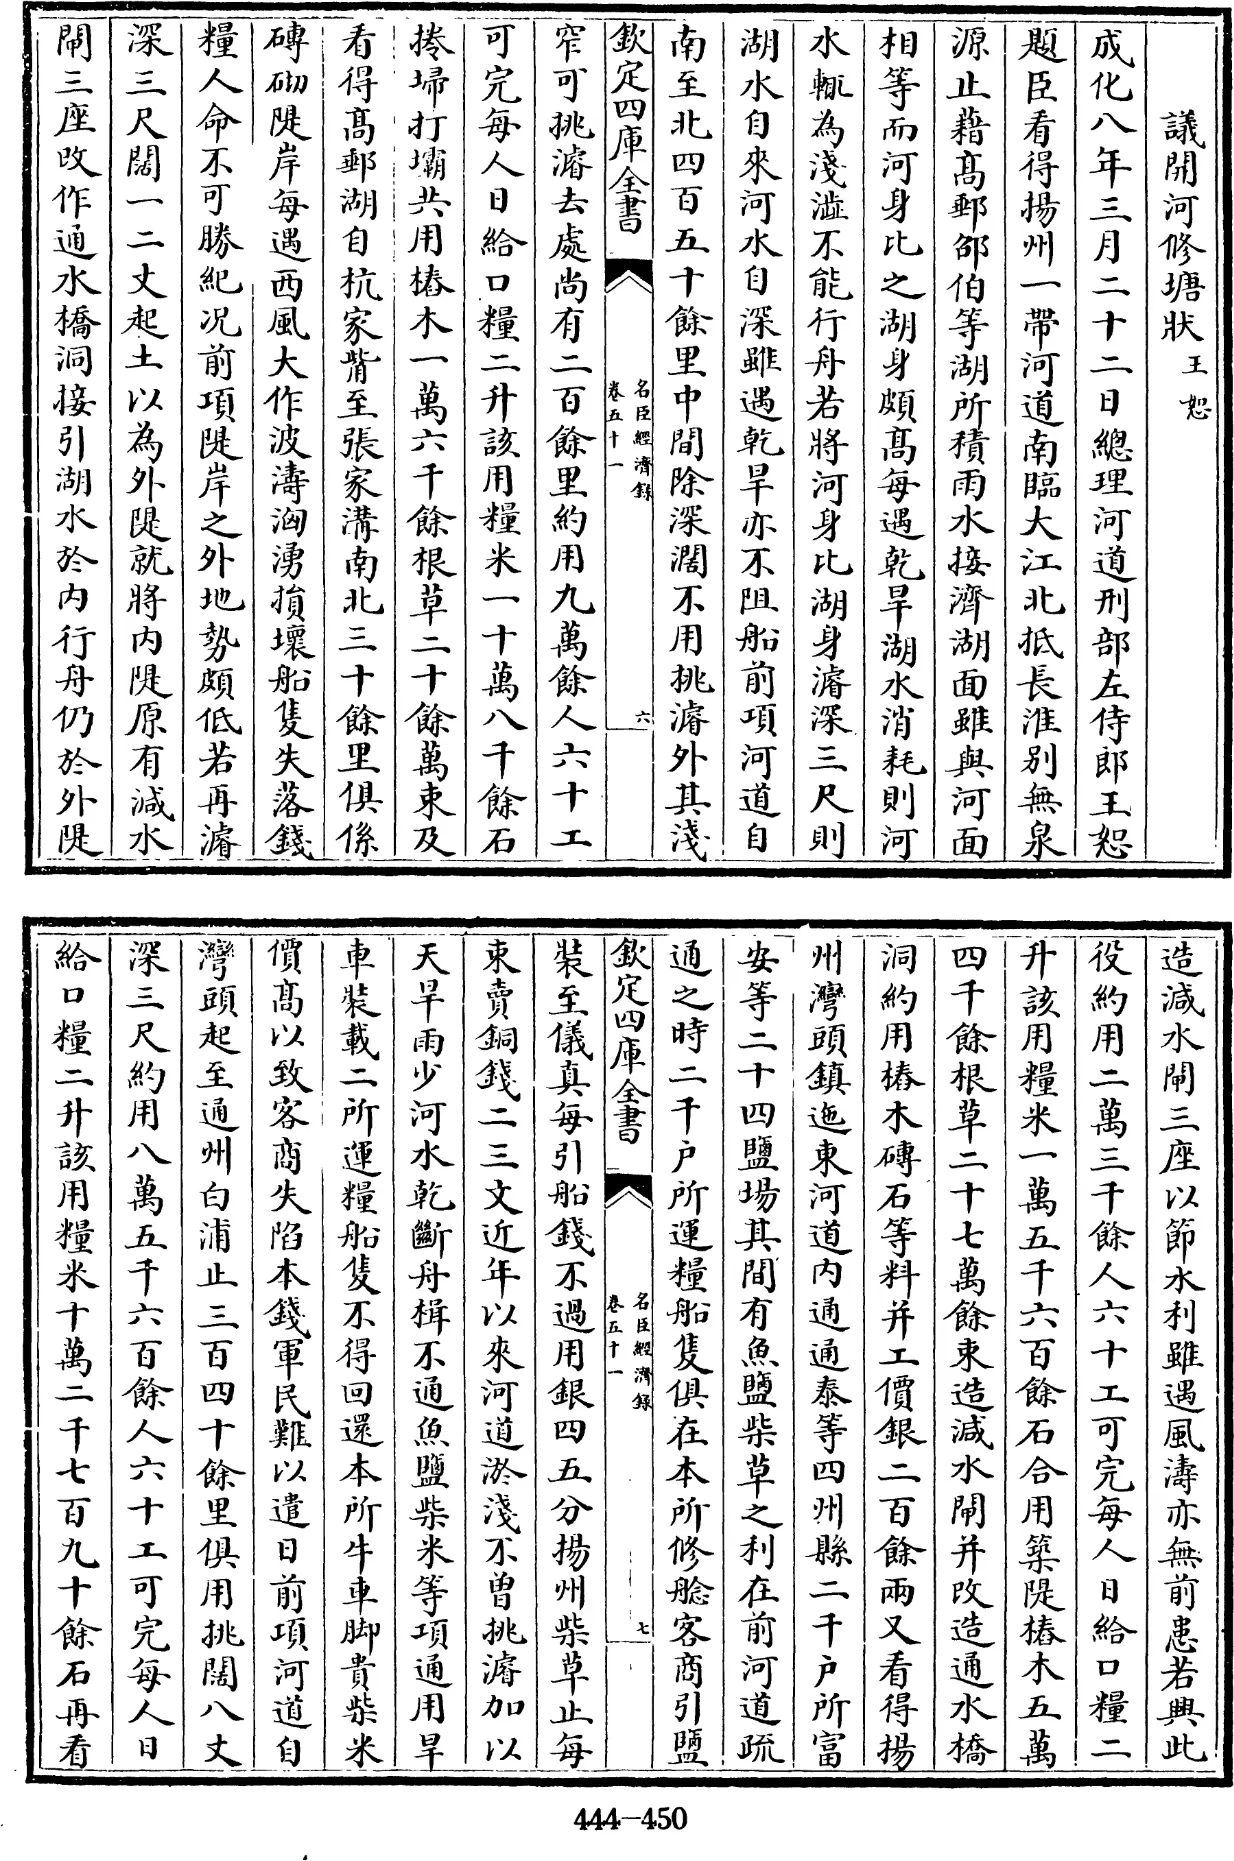 議開河修塘狀 王恕
成化八年三月二十二日總理河道刑部左侍郎王恕
題臣看得揚州一帶河道南臨大江北抵長淮别無泉
源止藉髙郵邵伯等湖所積雨水接濟湖面雖與河面
相等而河身比之湖身頗髙每遇乾旱湖水消耗則河
水輙為淺澁不能行舟若將河身比湖身濬深三尺則
湖水自來河水自深雖遇乾旱亦不阻船前項河道自
南至北四百五十餘里中間除深濶不用挑濬外其淺
欽定四庫全書
名臣經濟錄
卷五十一
六
窄可挑濬去處尚有二百餘里約用九萬餘人六十工
可完每人日給口糧二升該用糧米一十萬八千餘石
捲埽打壩共用樁木一萬六千餘根草二十餘萬束及
看得髙郵湖自杭家觜至張家溝南北三十餘里俱係
磚砌隄岸每遇西風大作波濤洶湧損壞船隻失落錢
糧人命不可勝紀况前項隄岸之外地勢頗低若再濬
深三尺闊一二丈起土以為外隄就將内隄原有減水
閘三座改作通水橋洞接引湖水於内行舟仍於外隄
造減水閘三座以節水利雖遇風濤亦無前患若興此
役約用二萬三千餘人六十工可完每人日給口糧二
升該用糧米一萬五千六百餘石合用築隄樁木五萬
四千餘根草二十七萬餘束造減水閘并改造通水橋
洞約用樁木磚石等料并工價銀二百餘兩又看得揚
州灣頭鎮迤東河道内通通泰等四州縣二千户所富
安等二十四鹽場其間有魚鹽柴草之利在前河道疏
通之時二千户所運糧船隻俱在本所修艌客商引鹽
欽定四庫全書
名臣經濟錄
卷五十一
七
裝至儀真每引船錢不過用銀四五分揚州柴草止每
束賣銅錢二三文近年以來河道淤淺不曾挑濬加以
天旱雨少河水乾斷舟楫不通魚鹽柴米等項通用旱
車裝載二所運糧船隻不得回還本所牛車脚貴柴米
價髙以致客商失陷本錢軍民難以遣日前項河道自
灣頭起至通州白浦止三百四十餘里俱用挑闊八丈
深三尺約用八萬五千六百餘人六十工可完每人日
給口糧二升該用糧米十萬二千七百九十餘石再看
444-450